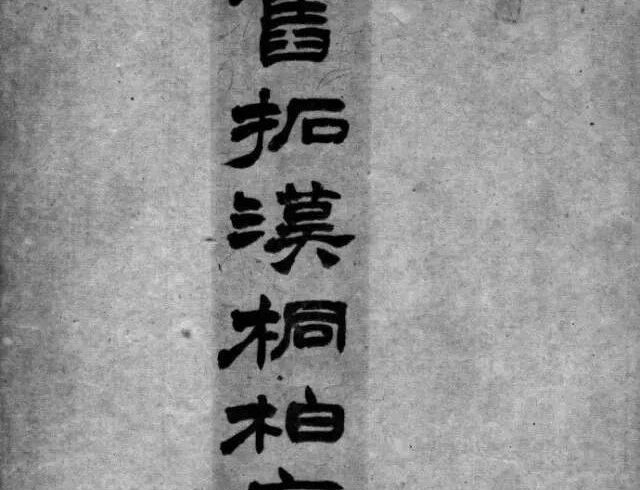 舊拓漢桐柏